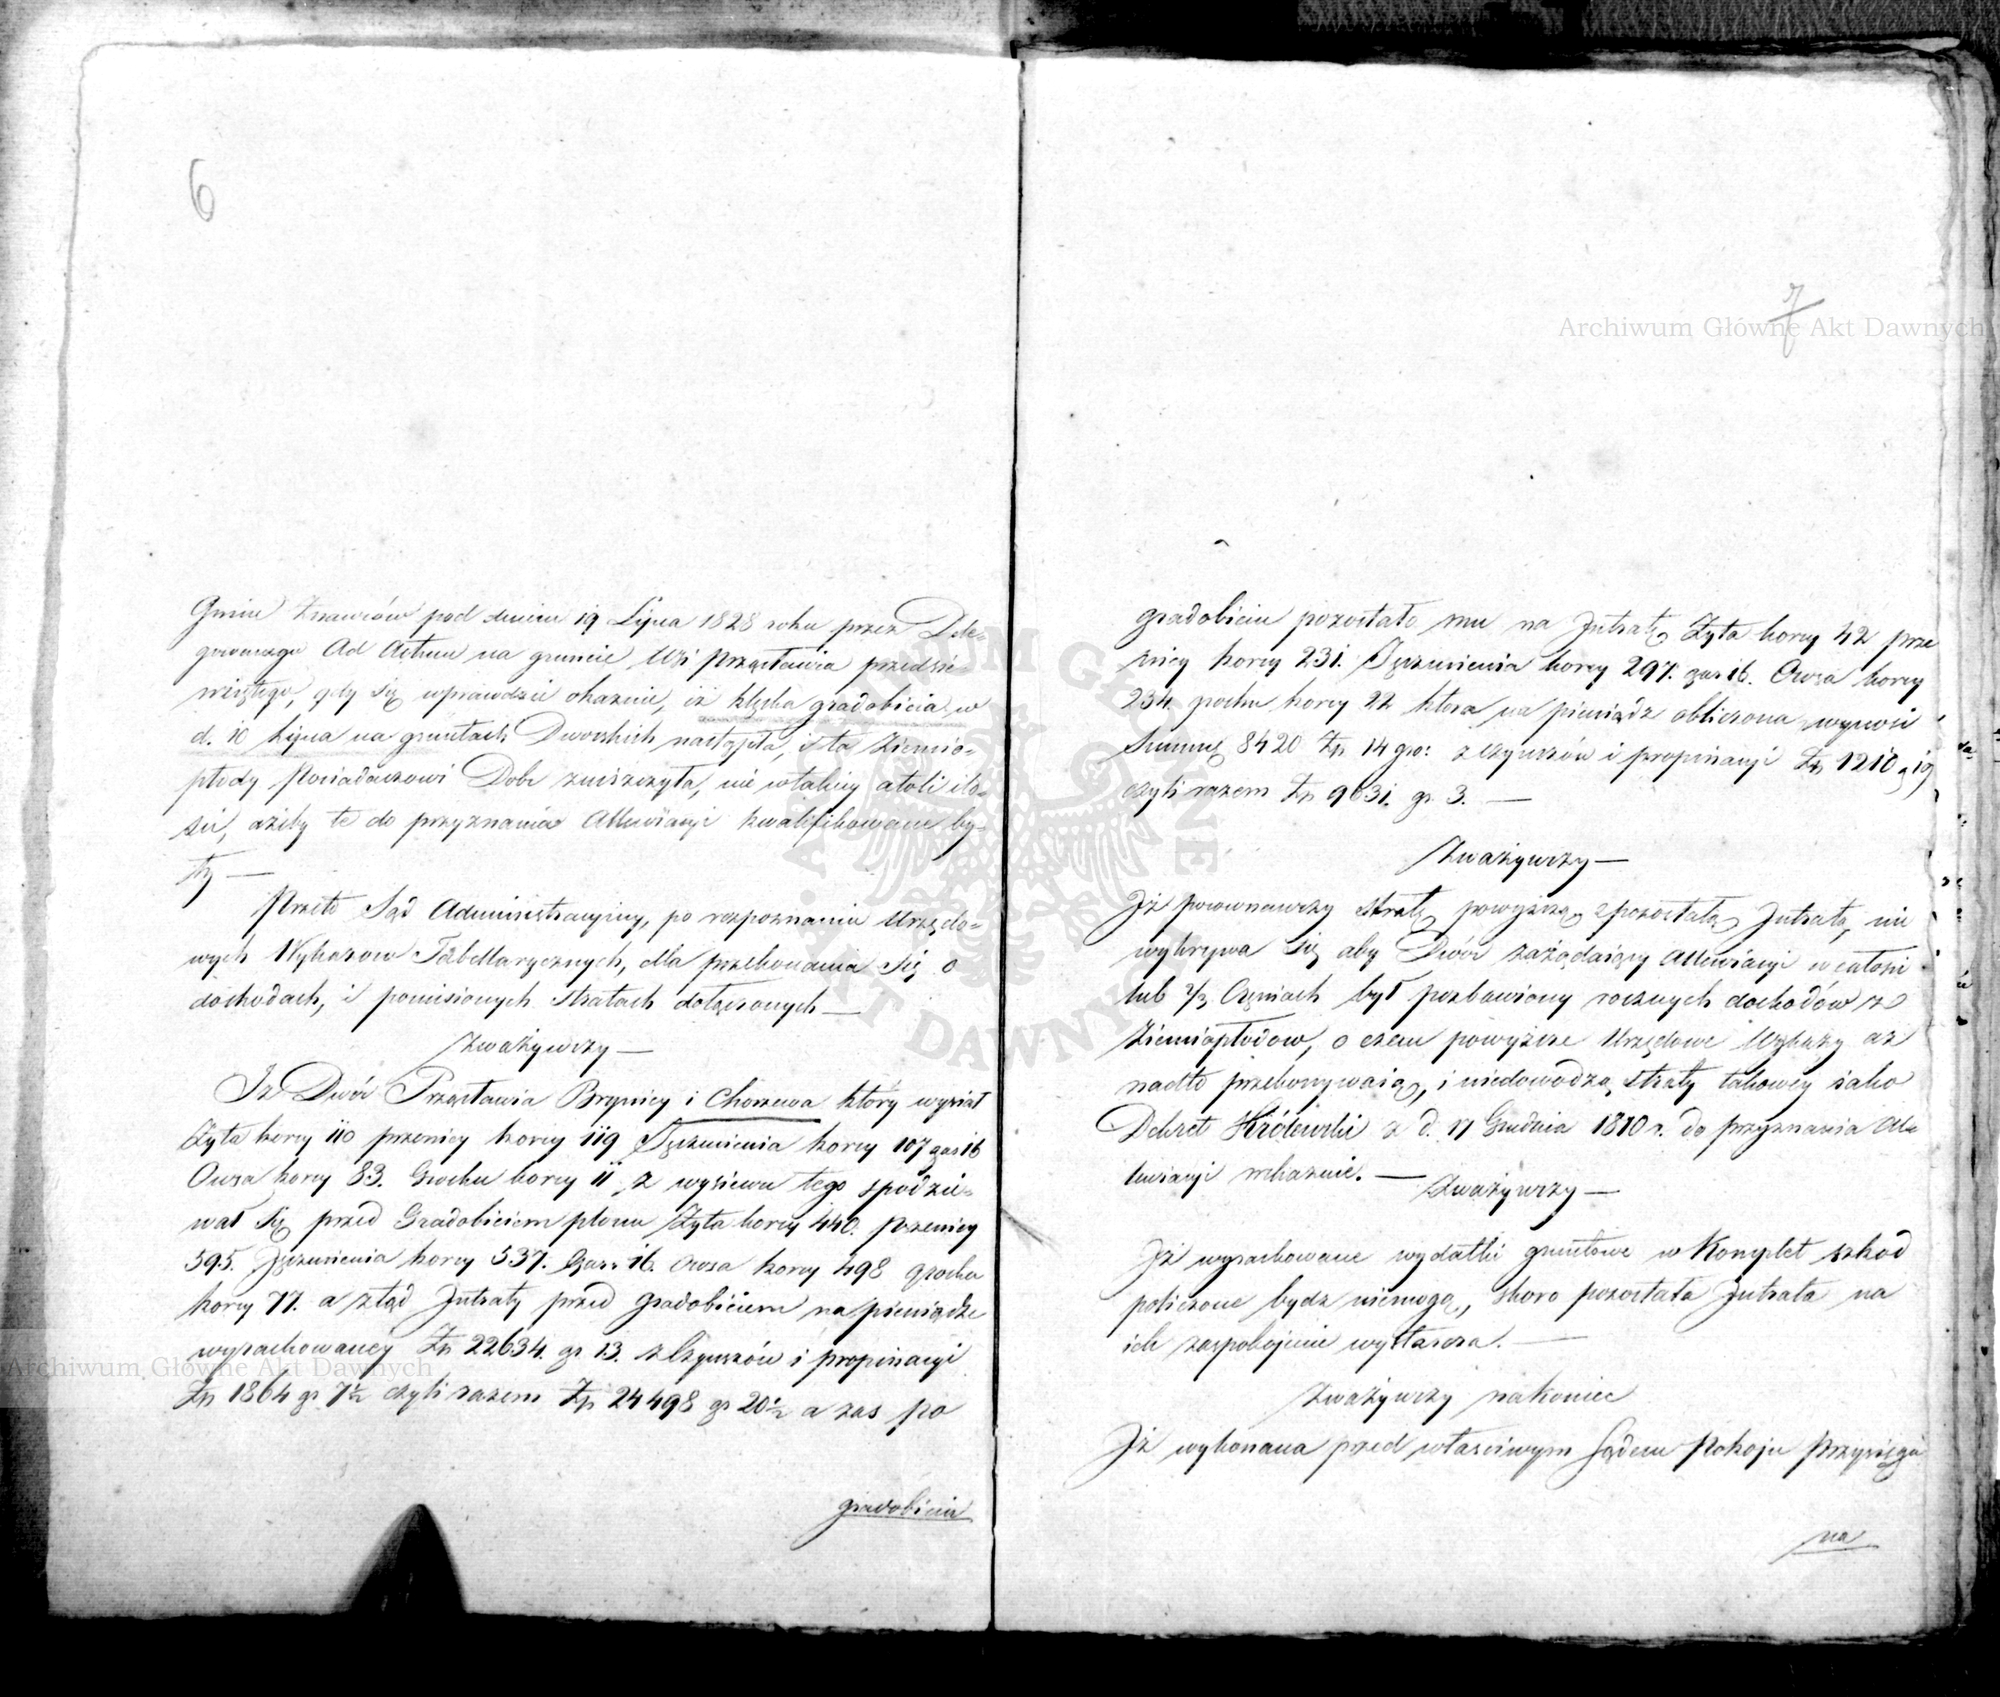 6
Gmin Znawców pod dniem 19 Lipca 1828 roku przez Dele-
gowanego Ad Actum na gruncie Wsi Przęsławia przedsię-
wziętego, gdy się wprawdzie okazuie, iż klęska gradobicia w
d. 10 Lipca na gruntach Dworskich nastąpiła, i ta Ziemio-
płody Posiadaczowi Dobr zniszczyła, nie wtakiey atoli ilo-
ści, ażeby te do przyznania Allewiacyi kwalifikowane by-
ły —
Przeto Sąd Administracyiny, po rozpoznaniu Urzędo-
wych Wykazow Tabellarycznych, dla przekonania się o
dochodach, i poniesionych stratach dołączonych —
Zważywszy —
Iż Dwór Przęsławia Brynicy i Chorzewa który wysiał
Żyta korcy 110 przenicy korcy 119 Jęczmienia korcy 107 gar 16
Owsa korcy 83. Grochu korcy 11 z wysiewu tego spodzie-
wał się przed Gradobiciem plonu Żyta korcy 440. Pszenicy
595. Jęczmienia korcy 537. Garr 16. Owsa korcy 498 grochu
korcy 77. a ztąd Jntraty przed gradobiciem na pieniądze
wyrachowaney Zp 22634. gr 13. z Czynszów i propinacyi
Zp 1864 gr 7½ czyli razem Zp 24498 gr 20½ a zas po
gradobiciu
7
Archiwum Główne Akt Dawnych
gradobiciu pozostało mu na Jntratę Żyta korcy 42 prze
nicy korcy 231. Jęczmienia korcy 297. gar 16. Owsa korcy
234 grochu korcy 22 ktora na pieniądz obliczona wynosi
Summę 8420 Zp 14 gro: z czynszów i propinacyi Zp 1210 g 19
czyli razem Zp 9631. gr 3. —
Zważywszy —
Jż porownawszy stratę powyższą z pozostałą Jntratą, nie
wykrywa się aby Dwór zażądaiący Allewiacyi w całosci
lub 2/3 Częsciach był pozbawiony rocznych dochodów z
Ziemiopłodow, o czem powyższe Urzędowe Wykazy aż
nadto przekonywaią, i niedowodzą straty takowey iako
Dekret Królewski z d. 17 Grudnia 1810 r. do przyznania Al-
lewiacyi wskazuie. —
Zważywszy —
Jż wyrachowane wydatki gruntowe w Komplet szkod
policzone bydz niemogą, skoro pozostała Jntrata na
ich zaspokojenie wystarcza. —
Zważywszy nakoniec
Jż wykonana przed własciwym Sądem Pokoju Przysięga
na
Archiwum Główne Akt Dawnych
ARCHIWUM GŁÓWNE AKT DAWNYCH